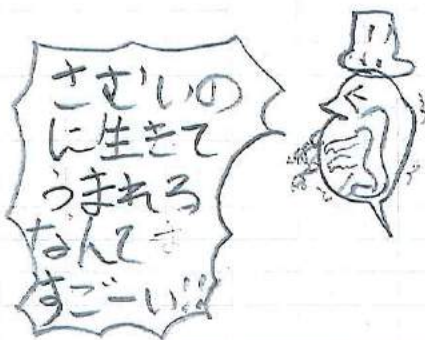 さむいの
に生きて
うまれる
なんて
すごーい!!